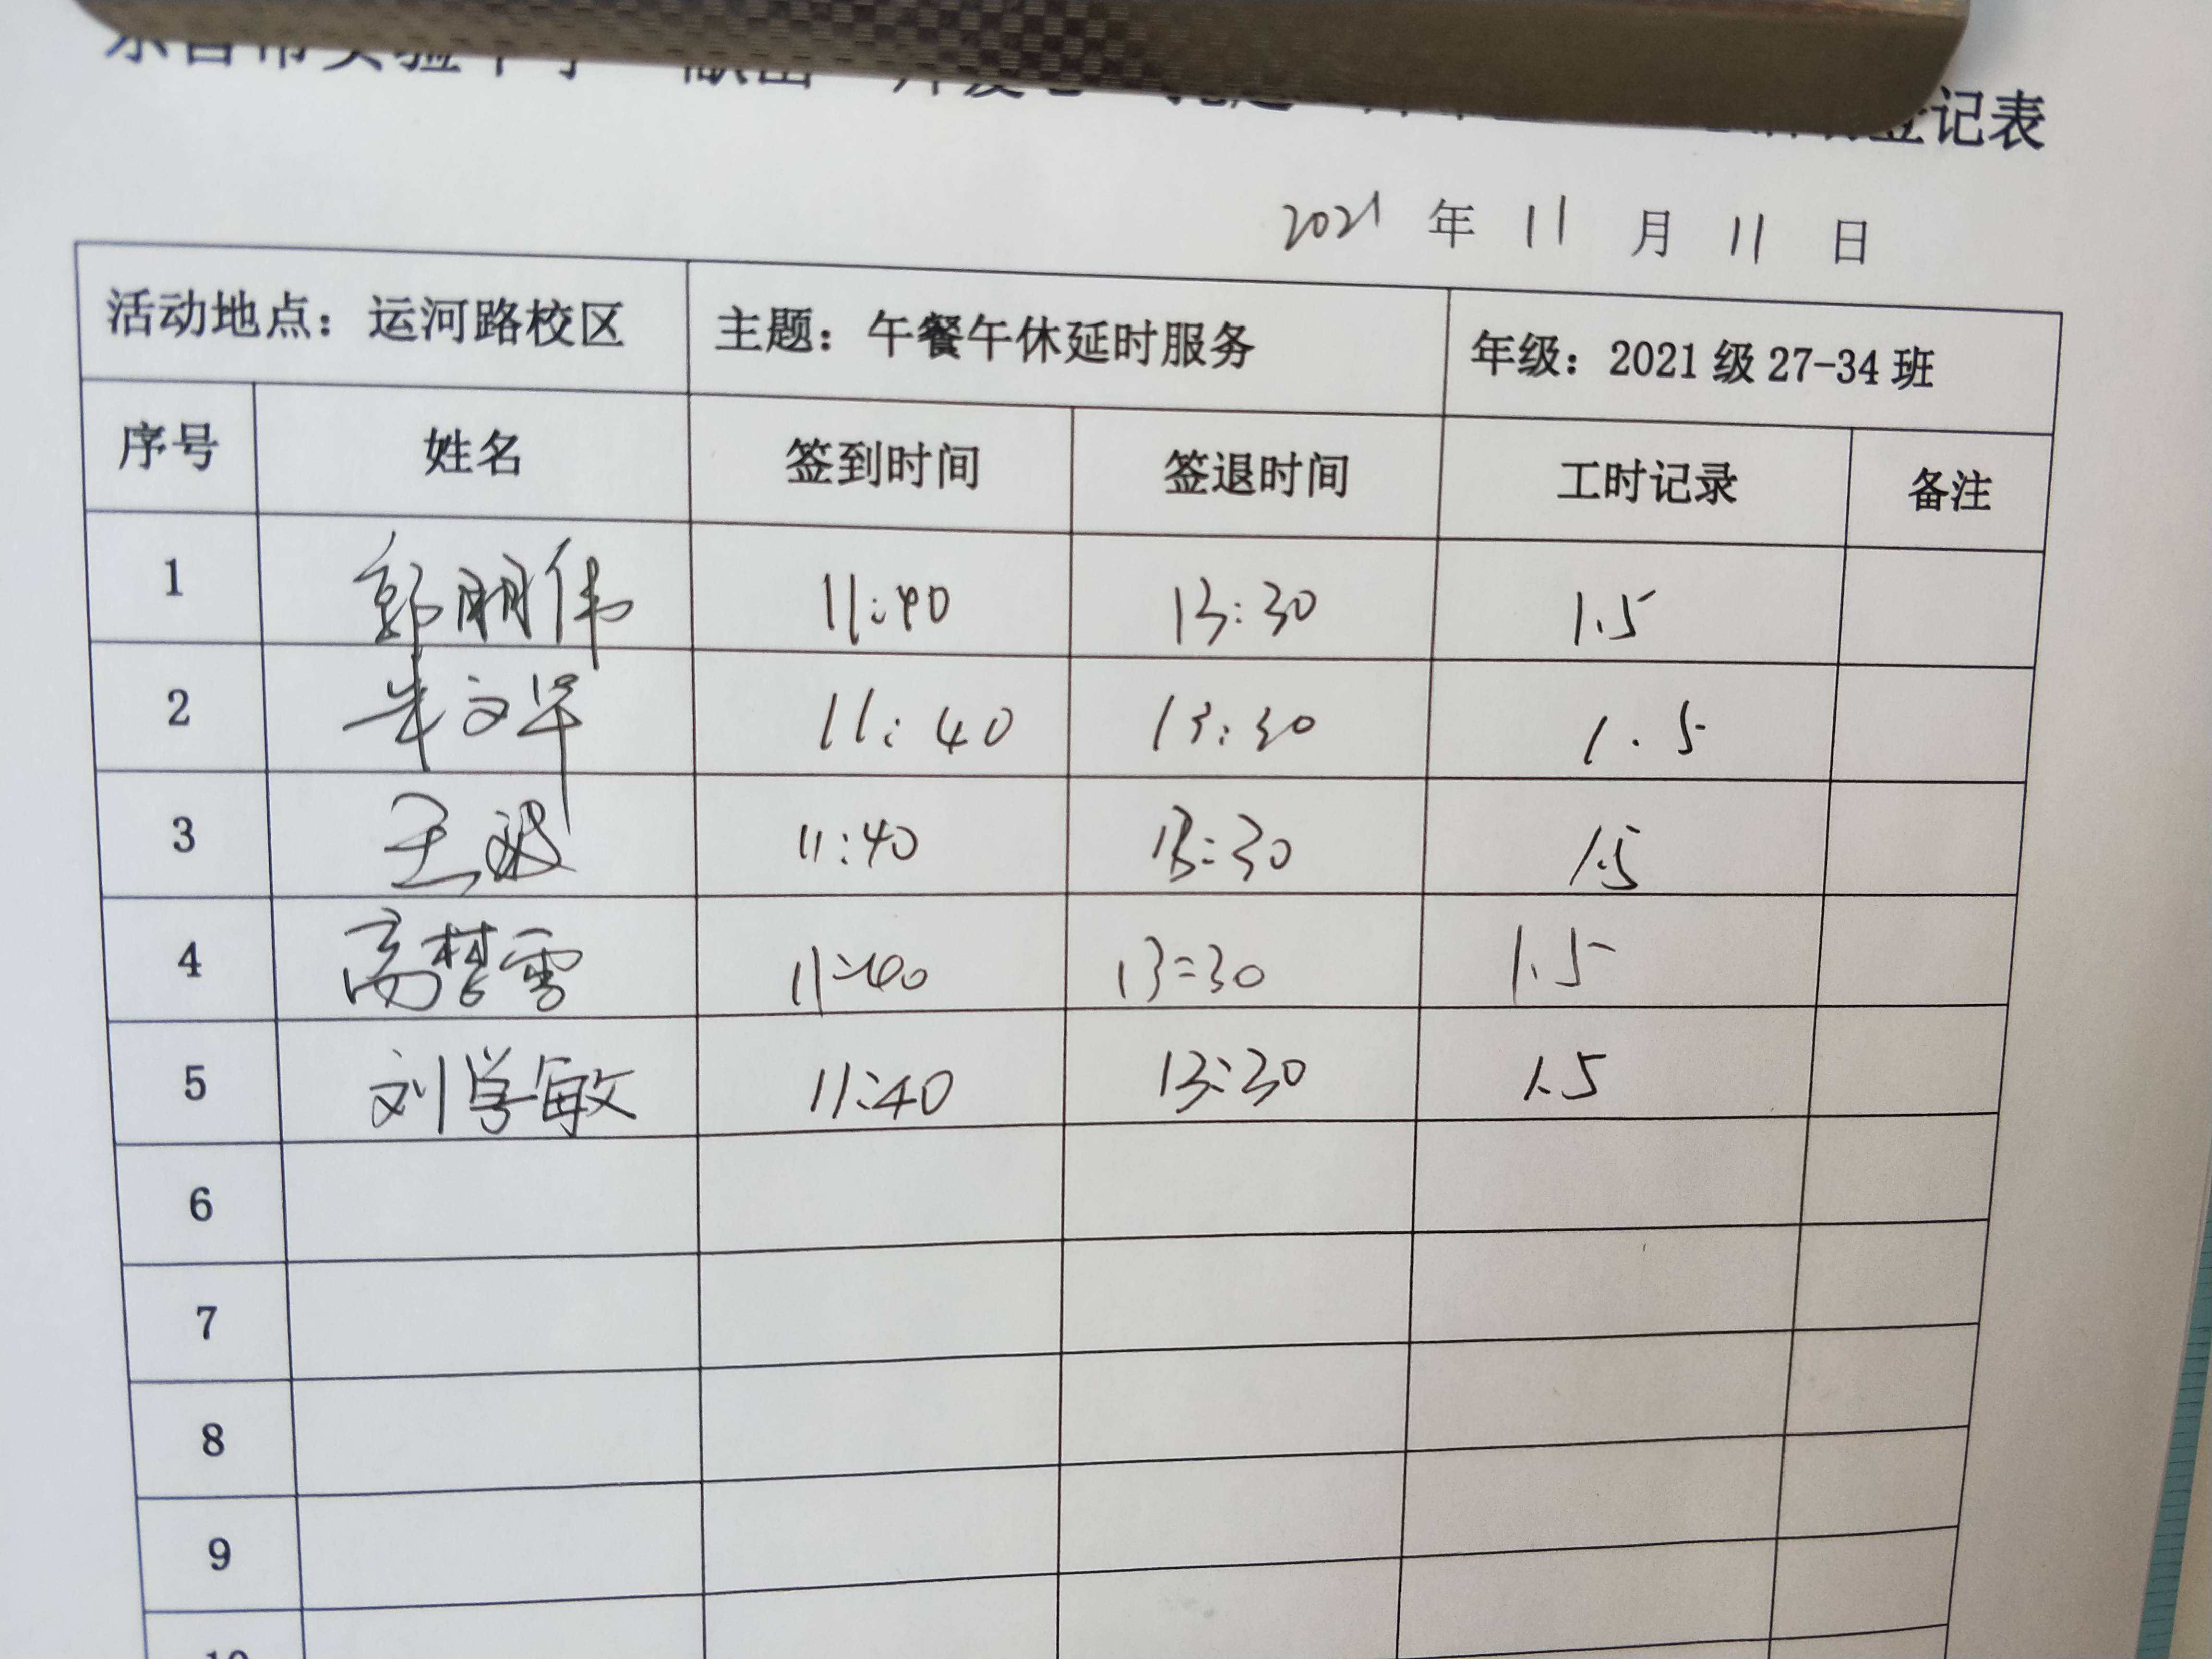 登记表
2021 年 11 月 11 日
活动地点：运河路校区 主题：午餐午休延时服务 年级：2021级27-34班
序号 姓名 签到时间 签退时间 工时记录 备注
1 郭朋伟 11:40 13:30 1.5
2 11:40 13:30 1.5
3 王波 11:40 13:30 1.5
4 高梦雪 11:40 13:30 1.5
5 刘学敏 11:40 13:30 1.5
6
7
8
9
10